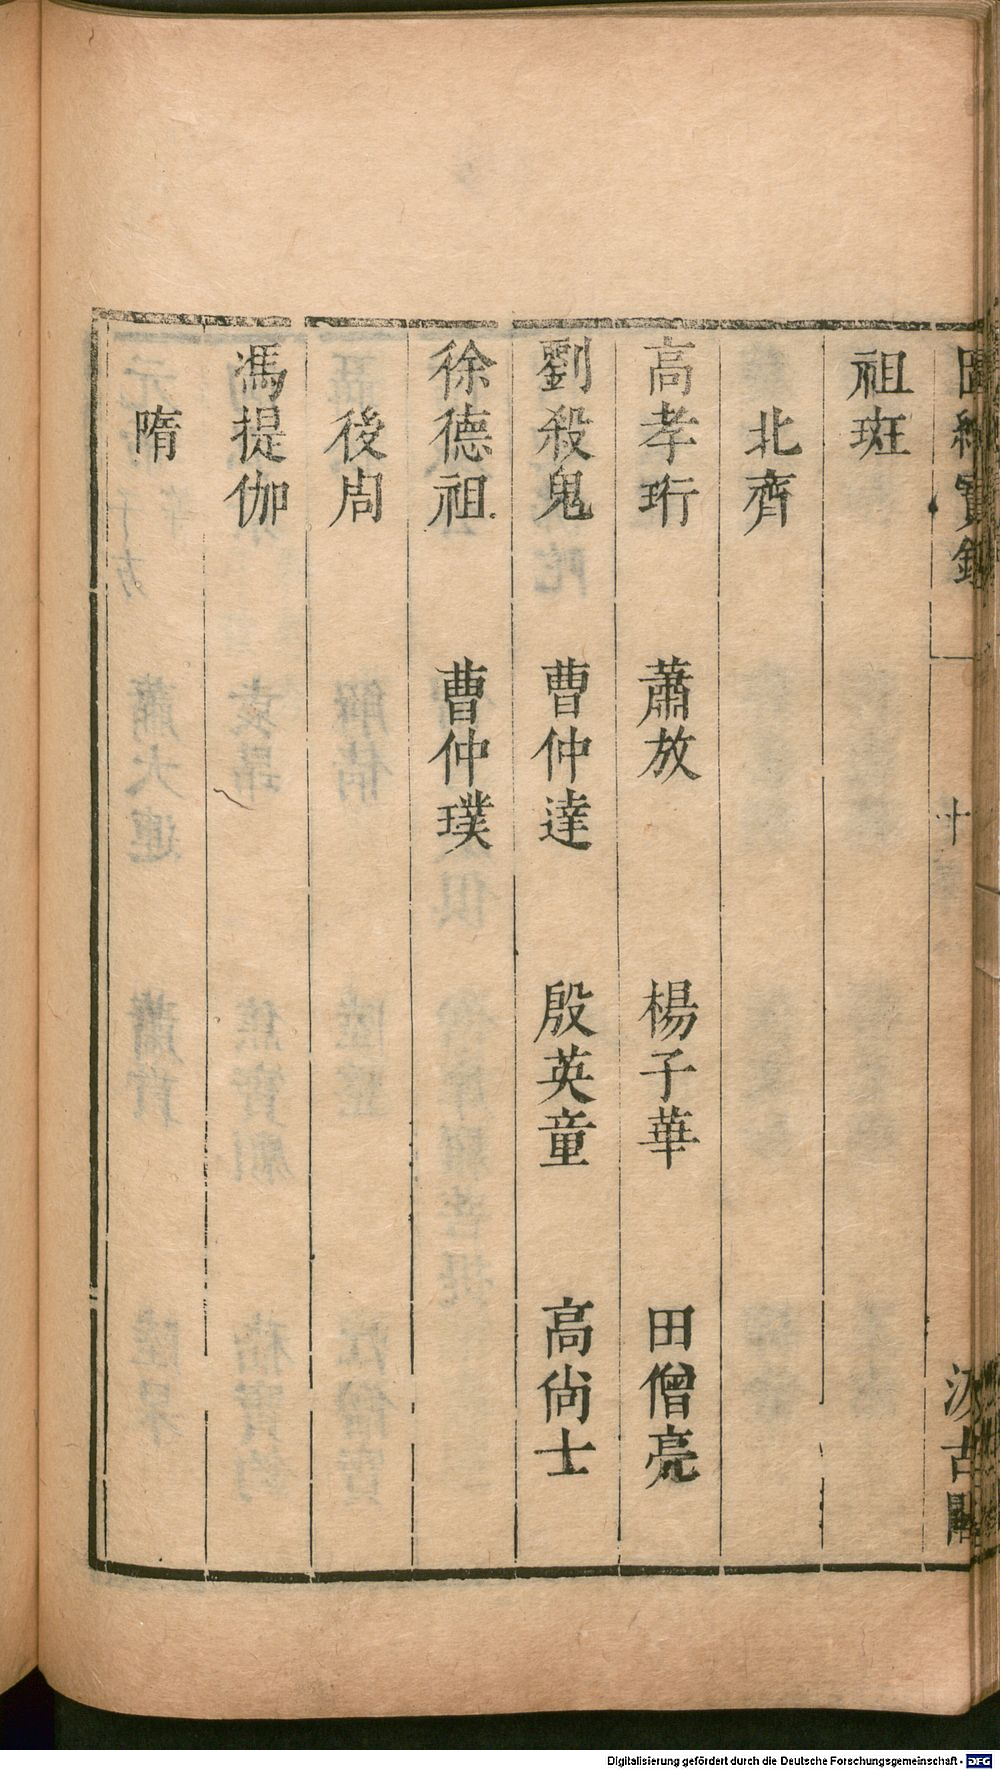 圖繪寶鑑
十
汲古閣
祖班
北齊
高孝珩 蕭放 楊子華 田僧亮
劉殺鬼 曹仲達 殷英童 高尚士
徐德祖 曹仲璞
後周
馮提伽
隋
Digitalisierung gefördert durch die Deutsche Forschungsgemeinschaft - DFG